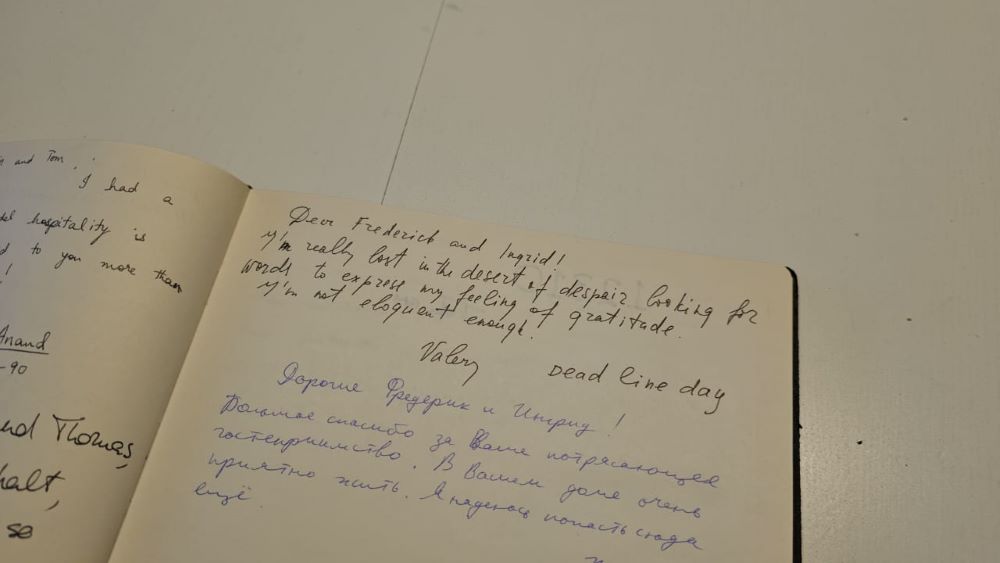 and Tom,
I had a
hospitality is
to you more than
!
Anand
-90
nd Thomas,
halt,
so
Dear Frederick and Ingrid!
I'm really lost in the desert of despair looking for
words to express my feeling of gratitude.
I'm not eloquent enough.
Valery
Dead line day
Дорогие Фредерик и Ингрид!
Большое спасибо за Ваше потрясающее
гостеприимство. В Вашем доме очень
приятно жить. Я надеюсь попасть сюда
ещё.